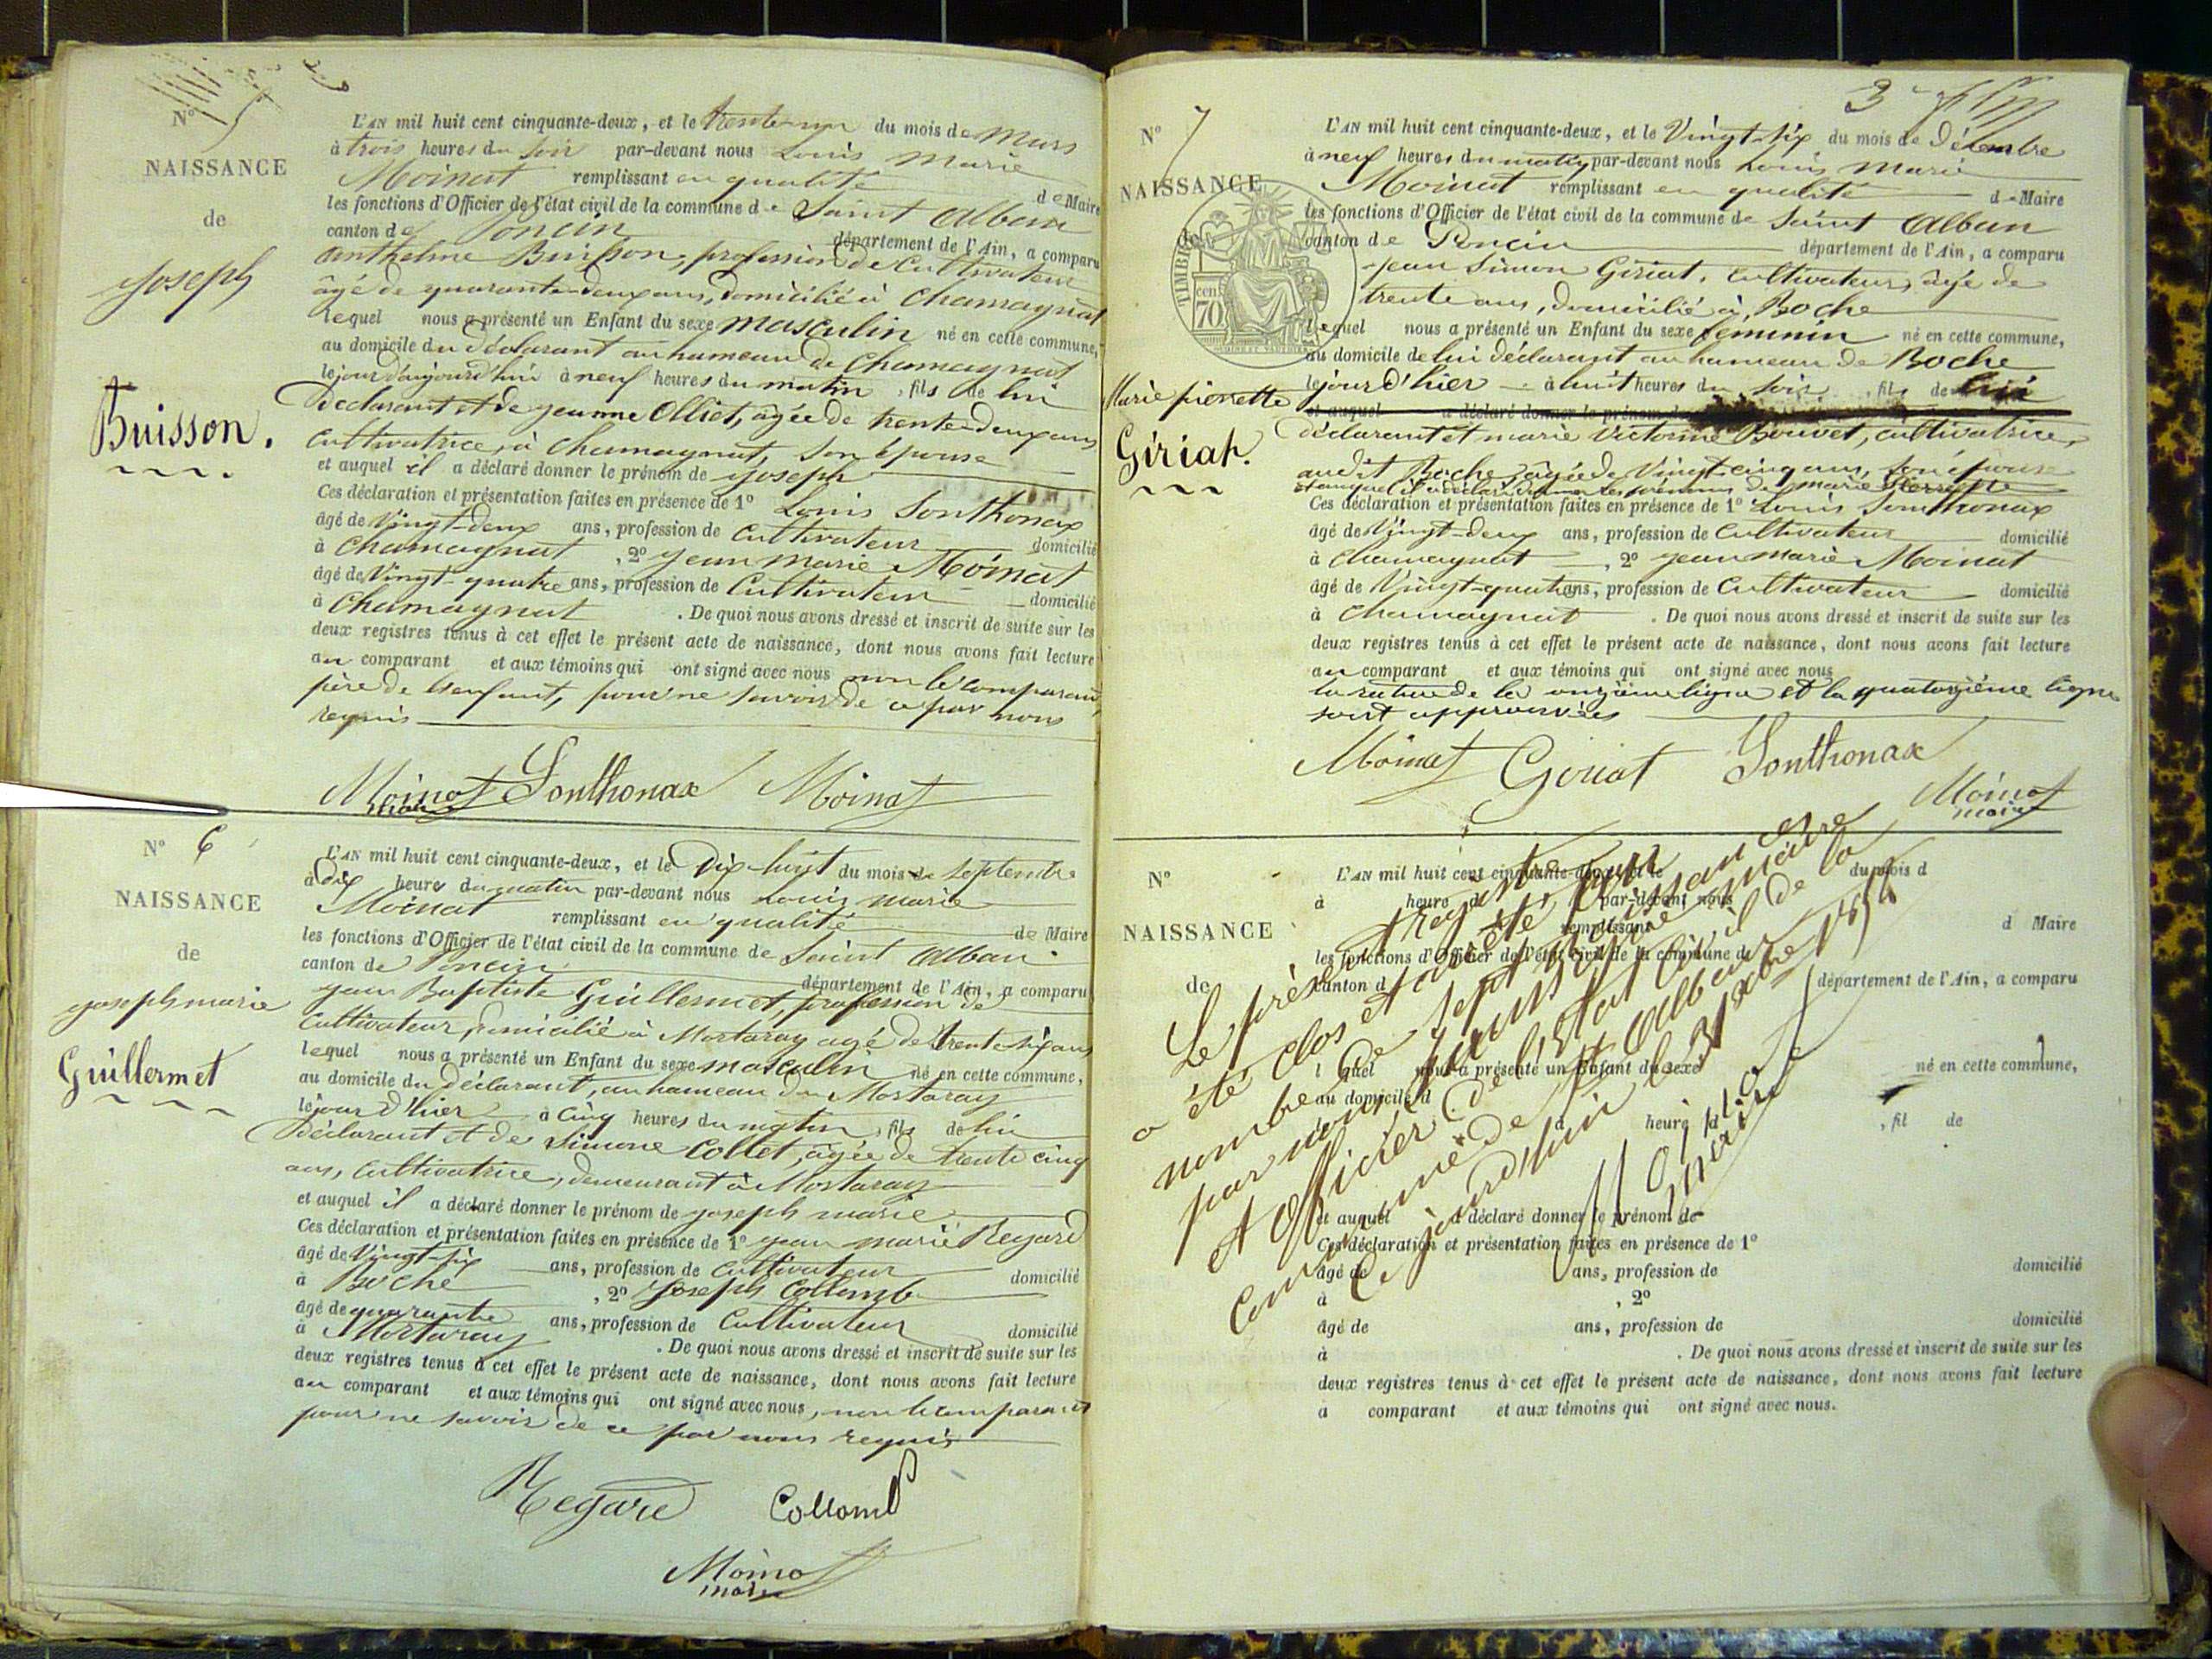 N° 5
NAISSANCE
de
Joseph
Buisson.
L'AN mil huit cent cinquante-deux, et le trente-un du mois de Mars
à trois heures du soir par-devant nous Louis Marie
Moinat remplissant en qualité de Maire
les fonctions d'Officier de l'état civil de la commune de Saint Alban
canton de Poncin département de l'Ain, a comparu
Anthelme Buisson, profession de Cultivateur
âgé de quarante-deux ans, domicilié à Chamagnat
lequel nous a présenté un Enfant du sexe masculin né en cette commune,
au domicile du déclarant au hameau de Chamagnat
le jour d'aujourd'hui à neuf heures du matin, fils de lui
Déclarant et de Jeanne Olliet, âgée de trente-deux ans
Cultivatrice, à Chamagnat, son épouse
et auquel il a déclaré donner le prénom de Joseph
Ces déclaration et présentation faites en présence de 1° Louis Sonthonax
âgé de Vingt-deux ans, profession de Cultivateur domicilié
à Chamagnat, 2° Jean Marie Moinat
âgé de Vingt-quatre ans, profession de Cultivateur domicilié
à Chamagnat. De quoi nous avons dressé et inscrit de suite sur les
deux registres tenus à cet effet le présent acte de naissance, dont nous avons fait lecture
au comparant et aux témoins qui ont signé avec nous non le comparant,
père de l'enfant, pour ne savoir de ce par nous
requis
Moinat Sonthonax Moinat
maire
N° 6
NAISSANCE
de
Joseph marie
Guillermet
L'AN mil huit cent cinquante-deux, et le Dix-huit du mois de Septembre
à dix heures du matin par-devant nous Louis Marie
Moinat remplissant en qualité de Maire
les fonctions d'Officier de l'état civil de la commune de Saint Alban
canton de Poncin département de l'Ain, a comparu
Jean Baptiste Guillermet, profession de
Cultivateur, domicilié à Mortaray agé de trente-six ans
lequel nous a présenté un Enfant du sexe masculin né en cette commune,
au domicile du déclarant, au hameau du Mortaray
le jour d'hier à Cinq heures du matin, fils de lui
Déclarant et de Simone Collet, âgée de trente cinq
ans, Cultivatrice, demeurant à Mortaray
et auquel il a déclaré donner le prénom de Joseph marie
Ces déclaration et présentation faites en présence de 1° Jean marie Regard
âgé de Vingt-six ans, profession de Cultivateur domicilié
à Boche, 2° Joseph Collomb
âgé de quarante ans, profession de Cultivateur domicilié
à Mortaray. De quoi nous avons dressé et inscrit de suite sur les
deux registres tenus à cet effet le présent acte de naissance, dont nous avons fait lecture
au comparant et aux témoins qui ont signé avec nous, non le comparant
pour ne savoir de ce par nous requis
Regard Collomb
Moinat
maire
3
N° 7
NAISSANCE
de
TIMBRE
70 cent
Marie pierrette
Giriat.
L'AN mil huit cent cinquante-deux, et le Vingt-six du mois de Décembre
à neuf heures du matin par-devant nous Louis Marie
Moinat remplissant en qualité de Maire
les fonctions d'Officier de l'état civil de la commune de Saint Alban
canton de Poncin département de l'Ain, a comparu
Jean Simon Giriat, Cultivateur, âgé de
trente ans, domicilié à Boche
lequel nous a présenté un Enfant du sexe féminin né en cette commune,
au domicile de lui déclarant au hameau de Boche
le jour d'hier à huit heures du soir, fils de lui
et auquel a déclaré donner le prénom de
déclarant et marie Victorine Bouvet, cultivatrice,
audit Boche, âgée de Vingt-cinq ans, son épouse
et auquel il a déclaré donner les prénoms de marie Pierrette
Ces déclaration et présentation faites en présence de 1° Louis Sonthonax
âgé de Vingt-deux ans, profession de Cultivateur domicilié
à Chamagnat, 2° Jean Marie Moinat
âgé de Vingt-quatre ans, profession de Cultivateur domicilié
à Chamagnat. De quoi nous avons dressé et inscrit de suite sur les
deux registres tenus à cet effet le présent acte de naissance, dont nous avons fait lecture
au comparant et aux témoins qui ont signé avec nous
la rature de la onzième ligne et la quatorzième ligne
sont approuvées
Moinat Giriat Sonthonax
Moinat
maire
N°
NAISSANCE
de
L'AN mil huit cent cinquante-deux, et le du mois d
à heure d par-devant nous
remplissant d Maire
les fonctions d'Officier de l'état civil de la commune de
canton d département de l'Ain, a comparu
l quel nous a présenté un Enfant du sexe né en cette commune,
au domicile d
à heure d, fil de
et auquel a déclaré donner le prénom de
Ces déclaration et présentation faites en présence de 1°
âgé de ans, profession de domicilié
à , 2°
âgé de ans, profession de domicilié
à . De quoi nous avons dressé et inscrit de suite sur les
deux registres tenus à cet effet le présent acte de naissance, dont nous avons fait lecture
a comparant et aux témoins qui ont signé avec nous.
Le présent Registre
a été clos et arrêté, pour
nombre de sept naissances
par nous soussigné maire
et Officier de l'Etat Civil de la
Commune de St Alban
Ce jourd'hui 31 xbre 1852
Moinat
maire